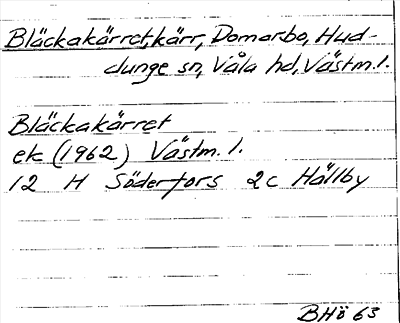 Bläckakärret, kärr, Domarbo, Hud-
dunge sn, Våla hd, Västm.l.
Bläckakärret
ek (1962) Västm. l.
12 H Söderfors 2c Hällby
BHö 63